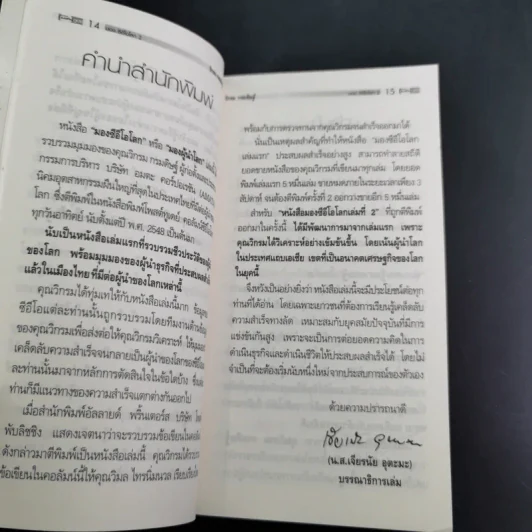 14
คำนำสำนักพิมพ์
หนังสือ "มองซีอีโอโลก" หรือ "มองผู้นำโลก"
รวบรวมมุมมองของคุณวิกรม กรมดิษฐ์ ผู้ก่อตั้ง
กรรมการบริหาร บริษัท อมตะ คอร์ปอเรชัน
นิคมอุตสาหกรรมยืนใหญ่ที่สุดในประเทศไทยที่มีต่อผู้นำ
โลก ซึ่งตีพิมพ์ในหนังสือพิมพ์โพสต์ทูเดย์ คอลัมน์ซีอีโอ
ทุกวันอาทิตย์ นับตั้งแต่ปี พ.ศ. 2548 เป็นต้นมา
นับเป็นหนังสือเล่มแรกที่รวบรวมชีวประวัติของ
ของโลก พร้อมมุมมองของผู้นำธุรกิจที่ประสบผลสำเร็จ
แล้วในเมืองไทย ที่มีต่อผู้นำของโลกเหล่านี้
คุณวิกรมได้ทุ่มเทให้กับหนังสือเล่มนี้มาก ข้อมูล
ซีอีโอแต่ละท่านนั้นถูกรวบรวมโดยทีมงานด้าน
ของคุณวิกรมเพื่อส่งต่อให้คุณวิกรมวิเคราะห์ ให้
เคล็ดลับความสำเร็จจนกลายเป็นผู้นำของโลกของซีอีโอ
ละท่านนั้นมาจากหลักการตัดสินใจในข้อใดบ้าง ซึ่ง
ท่านก็มีแนวทางของความสำเร็จแตกต่างกันออกไป
เมื่อสำนักพิมพ์อัลลายด์ พริ้นเตอร์ส บริษัท โพสต์
พับลิชชิง แสดงเจตนาว่าจะรวบรวมข้อเขียนในคอลัมน์
ดังกล่าวมาตีพิมพ์เป็นหนังสือเล่มนี้ คุณวิกรมได้กรุณา
ข้อเขียนในคอลัมน์นี้ให้คุณวิมล ไทรนิ่มนวล เรียบเรียงใหม่
15
พร้อมกับการตรวจทานจากคุณวิกรมจนสำเร็จออกมาได้
นั่นเป็นเหตุผลสำคัญที่ทำให้หนังสือ "มองซีอีโอโลก
เล่มแรก" ประสบผลสำเร็จอย่างสูง สามารถทำลายสถิติ
ยอดขายหนังสือของคุณวิกรมที่เขียนมาทุกเล่ม โดยยอด
พิมพ์เล่มแรก 5 หมื่นเล่ม ขายหมดภายในระยะเวลาเพียง 3
สัปดาห์ จนต้องตีพิมพ์ครั้งที่ 2 ออกวางขายอีก 5 หมื่นเล่ม
สำหรับ "หนังสือมองซีอีโอโลกเล่มที่ 2" ที่ถูกตีพิมพ์
ออกมาในครั้งนี้ ได้มีพัฒนาการมาจากเล่มแรก เพราะ
คุณวิกรมได้วิเคราะห์อย่างเข้มข้นขึ้น โดยเน้นผู้นำโลก
ในประเทศแถบเอเชีย เขตที่เป็นอนาคตเศรษฐกิจของโลก
ในยุคนี้
จึงหวังเป็นอย่างยิ่งว่า หนังสือเล่มนี้จะมีประโยชน์ต่อทุก
ท่านที่ได้อ่าน โดยเฉพาะเยาวชนที่ต้องการเรียนรู้เคล็ดลับ
ความสำเร็จทางลัด เหมาะสมกับยุคสมัยปัจจุบันที่มีการ
แข่งขันกันสูง เพราะจะเป็นการต่อยอดความคิดในการ
ดำเนินธุรกิจและดำเนินชีวิตให้ประสบผลสำเร็จได้ โดยไม่
จำเป็นที่จะต้องเริ่มนับหนึ่งใหม่จากประสบการณ์ของตัวเอง
ด้วยความปรารถนาดี
(น.ส.เจียรนัย อุตะมะ)
บรรณาธิการเล่ม